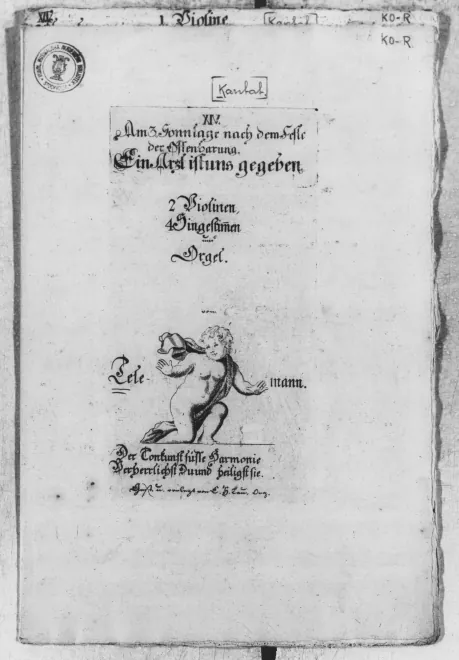 XIV. 1. Violine [Kantat.] KO-R
KO-R
[Kantat.]
XIV.
Am 3. Sonntage nach dem Feste
der Offenbarung.
Ein Arzt ist uns gegeben,
2 Violinen,
4 Singestim̄en
und
Orgel.
vom
Tele- mann.
Der Tonkunst süsse Harmonie
Verherrlichst Du und heiligst sie.